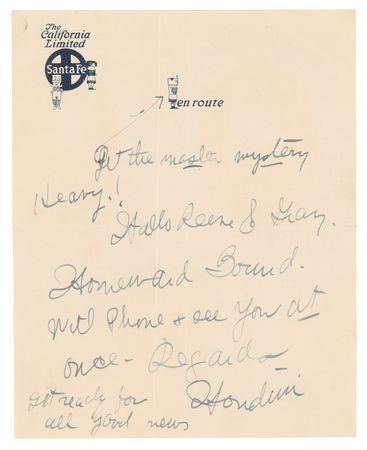 The
California
Limited
Santa Fe
en route
Get the master mystery
Heavy!!
Hallo Reene & Gray.
Homeward Bound.
Will Phone & see You at
once - Regards
Houdini
Get ready for
all good news